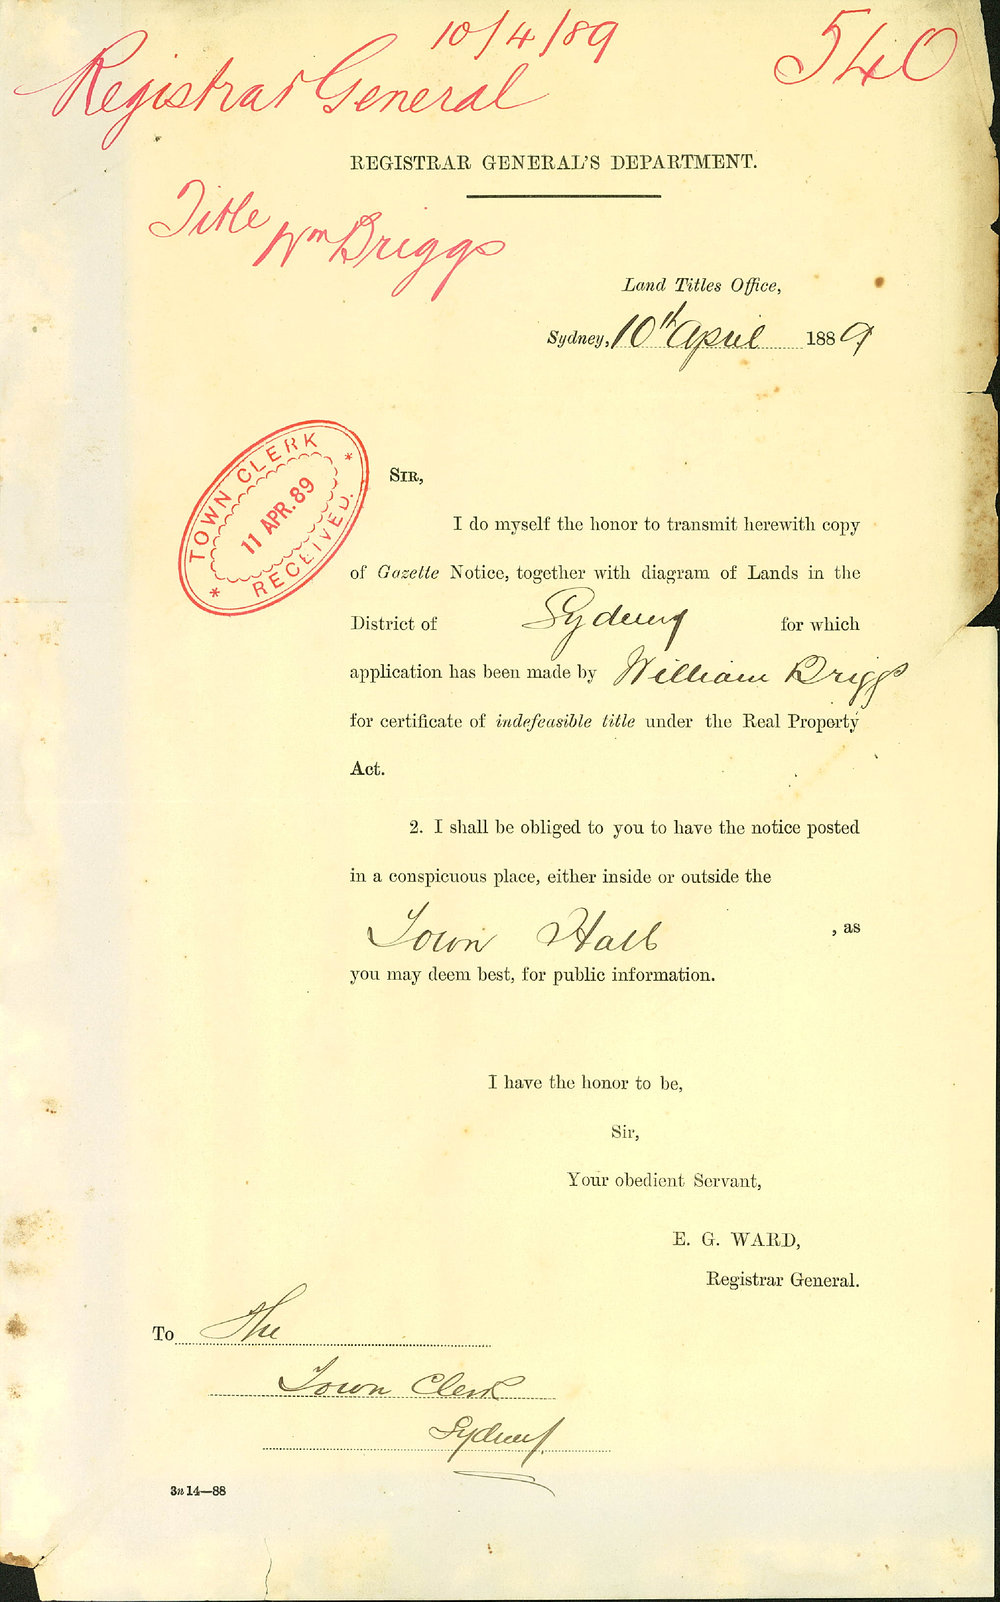 10/4/89
540
Registrar General
REGISTRAR GENERAL'S DEPARTMENT.
Title
Wm Briggs
Land Titles Office,
Sydney, 10th April 1889
TOWN CLERK
11 APR. 89
RECEIVED.
SIR,
I do myself the honor to transmit herewith copy
of Gazette Notice, together with diagram of Lands in the
District of Sydney for which
application has been made by William Briggs
for certificate of indefeasible title under the Real Property
Act.
2. I shall be obliged to you to have the notice posted
in a conspicuous place, either inside or outside the
Town Hall , as
you may deem best, for public information.
I have the honor to be,
Sir,
Your obedient Servant,
E. G. WARD,
Registrar General.
To The
Town Clerk
Sydney.
3n 14—88